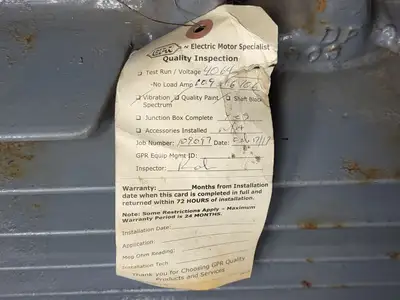 ~ Electric Motor Specialist
Quality Inspection
Test Run / Voltage
-No Load Amp
Vibration Quality Paint Shaft Block
Spectrum
Junction Box Complete
Accessories Installed
Job Number: Date:
GPR Equip Mgmt ID:
Inspector:
Warranty: Months from Installation
date when this card is completed in full and
returned within 72 HOURS of installation.
Note: Some Restrictions Apply ~ Maximum
Warranty Period is 24 MONTHS.
Installation Date:
Application:
Meg Ohm Reading:
Installation Tech:
Thank you for Choosing GPR Quality
Products and Services